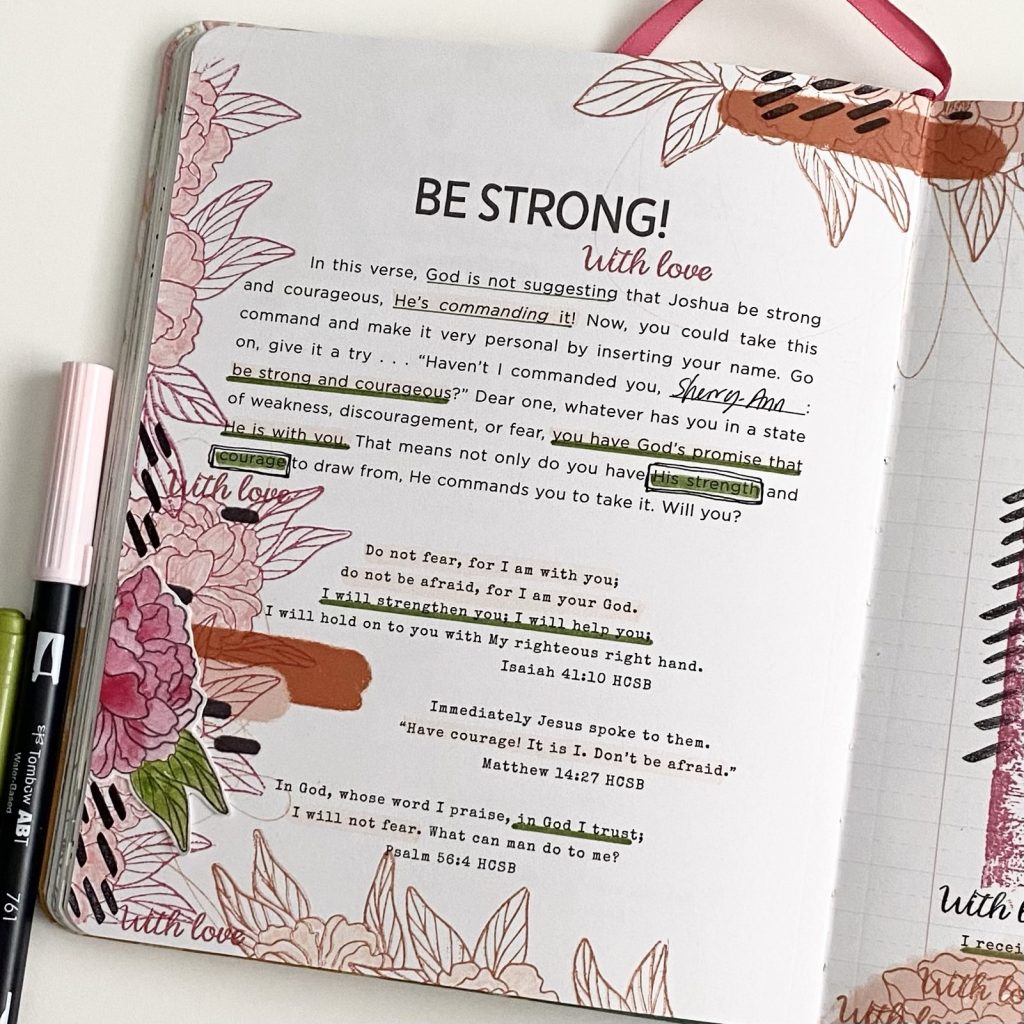 BE STRONG!
With love
In this verse, God is not suggesting that Joshua be strong
and courageous, He's commanding it! Now, you could take this
command and make it very personal by inserting your name. Go
on, give it a try . . . “Haven't I commanded you, Sherry Ann :
be strong and courageous?” Dear one, whatever has you in a state
of weakness, discouragement, or fear, you have God's promise that
He is with you. That means not only do you have His strength and
courage to draw from, He commands you to take it. Will you?
With love
Do not fear, for I am with you;
do not be afraid, for I am your God.
I will strengthen you; I will help you;
I will hold on to you with My righteous right hand.
Isaiah 41:10 HCSB
Immediately Jesus spoke to them.
“Have courage! It is I. Don't be afraid.”
Matthew 14:27 HCSB
In God, whose word I praise, in God I trust;
I will not fear. What can man do to me?
Psalm 56:4 HCSB
With love
With l
I recei
With lo
With love
Tombow ABT
Water-Based
761